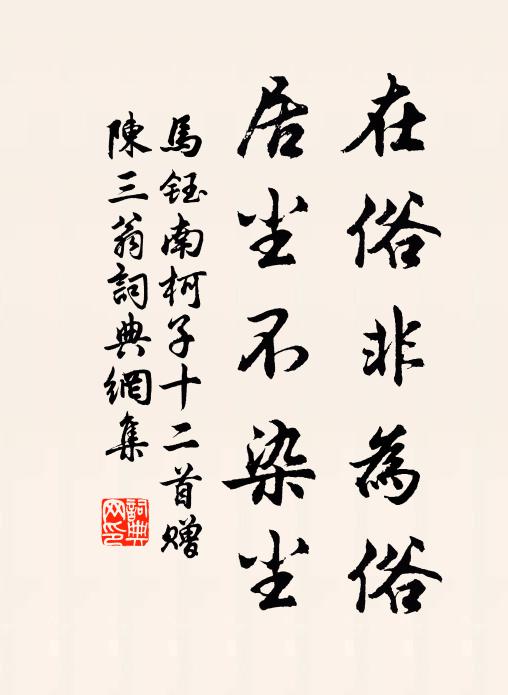 在俗非為俗
居尘不染尘
馬鈺南柯子十二首赠
陳三翁詞典網集
詞典
网印